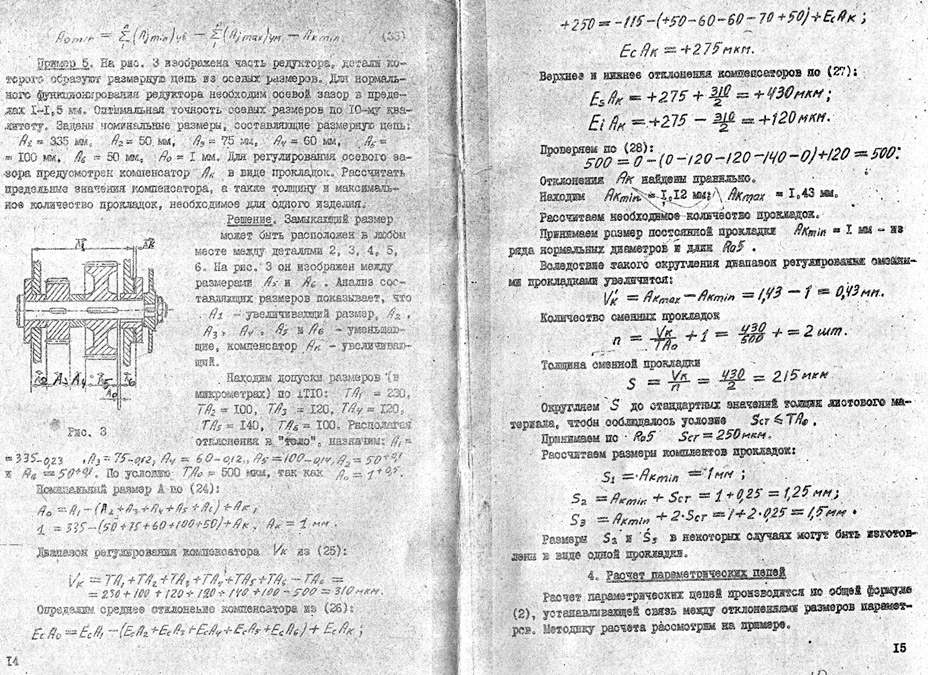 A₀min = Σ(Aj min)ув − Σ(Aj max)ум − Aк min. (33)
Пример 5. На рис. 3 изображена часть редуктора, детали ко-
торого образуют размерную цепь из осевых размеров. Для нормаль-
ного функционирования редуктора необходим осевой зазор в преде-
лах 1-1,5 мм. Оптимальная точность осевых размеров по 10-му ква-
литету. Заданы номинальные размеры, составляющие размерную цепь:
= 335 мм, A₂ = 50 мм, A₃ = 75 мм, A₄ = 60 мм, A₅ =
= 100 мм, A₆ = 50 мм, A₀ = 1 мм. Для регулирования осевого за-
зора предусмотрен компенсатор Aк в виде прокладок. Рассчитать
предельные значения компенсатора, а также толщину и максималь-
ное количество прокладок, необходимое для одного изделия.
Решение. Замыкающий размер
может быть расположен в любом
месте между деталями 2, 3, 4, 5,
6. На рис. 3 он изображен между
размерами A₅ и A₆. Анализ сос-
тавляющих размеров показывает, что
A1 - увеличивающий размер, A₂,
A₃, A₄, A₅ и A₆ - уменьшаю-
щие, компенсатор Aк - увеличиваю-
щий.
Находим допуски размеров (в
микрометрах) по IT10: TA₁ = 230,
TA₂ = 100, TA₃ = 120, TA₄ = 120,
TA₅ = 140, TA₆ = 100. Располагая
отклонения в "тело", назначим: A₁ =
Рис. 3
= 335-0,23, A₃ = 75-0,12, A₄ = 60-0,12, A₅ = 100-0,14, A₂ = 50+0,1
и A₆ = 50+0,1. По условию TA₀ = 500 мкм, так как A₀ = 1+0,5.
Номинальный размер A по (24):
A₀ = A₁ − (A₂ + A₃ + A₄ + A₅ + A₆) + Aк;
1 = 335 − (50 + 75 + 60 + 100 + 50) + Aк, Aк = 1 мм.
Диапазон регулирования компенсатора Vк из (25):
Vк = TA₁ + TA₂ + TA₃ + TA₄ + TA₅ + TA₆ − TA₀ =
= 230 + 100 + 120 + 120 + 140 + 100 − 500 = 310 мкм.
Определим среднее отклонение компенсатора из (26):
EcA₀ = EcA₁ − (EcA₂ + EcA₃ + EcA₄ + EcA₅ + EcA₆) + EcAк;
14
+250 = −115 − (+50 − 60 − 60 − 70 + 50) + EcAк;
EcAк = +275 мкм.
Верхнее и нижнее отклонения компенсаторов по (27):
EsAк = +275 + 310/2 = +430 мкм;
EiAк = +275 − 310/2 = +120 мкм.
Проверяем по (28):
500 = 0 − (0 − 120 − 120 − 140 − 0) + 120 = 500.
Отклонения Aк найдены правильно.
Находим Aк min = 1,12 мм; Aк max = 1,43 мм.
Рассчитаем необходимое количество прокладок.
Принимаем размер постоянной прокладки Aк min = 1 мм - из
ряда нормальных диаметров и длин Ra5.
Вследствие такого округления диапазон регулирования сменны-
ми прокладками увеличится:
Vк = Aк max − Aк min = 1,43 − 1 = 0,43 мм.
Количество сменных прокладок
n = Vк/TA₀ + 1 = 430/500 + = 2 шт.
Толщина сменной прокладки
S = Vк/n = 430/2 = 215 мкм
Округляем S до стандартных значений толщин листового ма-
териала, чтобы соблюдалось условие Sст ≤ TA₀.
Принимаем по Ra5 Sст = 250 мкм.
Рассчитаем размеры комплектов прокладок:
S₁ = Aк min = 1 мм;
S₂ = Aк min + Sст = 1 + 0,25 = 1,25 мм;
S₃ = Aк min + 2·Sст = 1 + 2·0,25 = 1,5 мм.
Размеры S₂ и S₃ в некоторых случаях могут быть изготов-
лены в виде одной прокладки.
4. Расчет параметрических цепей
Расчет параметрических цепей производится по общей формуле
(2), устанавливающей связь между отклонениями размеров парамет-
ров. Методику расчета рассмотрим на примере.
15